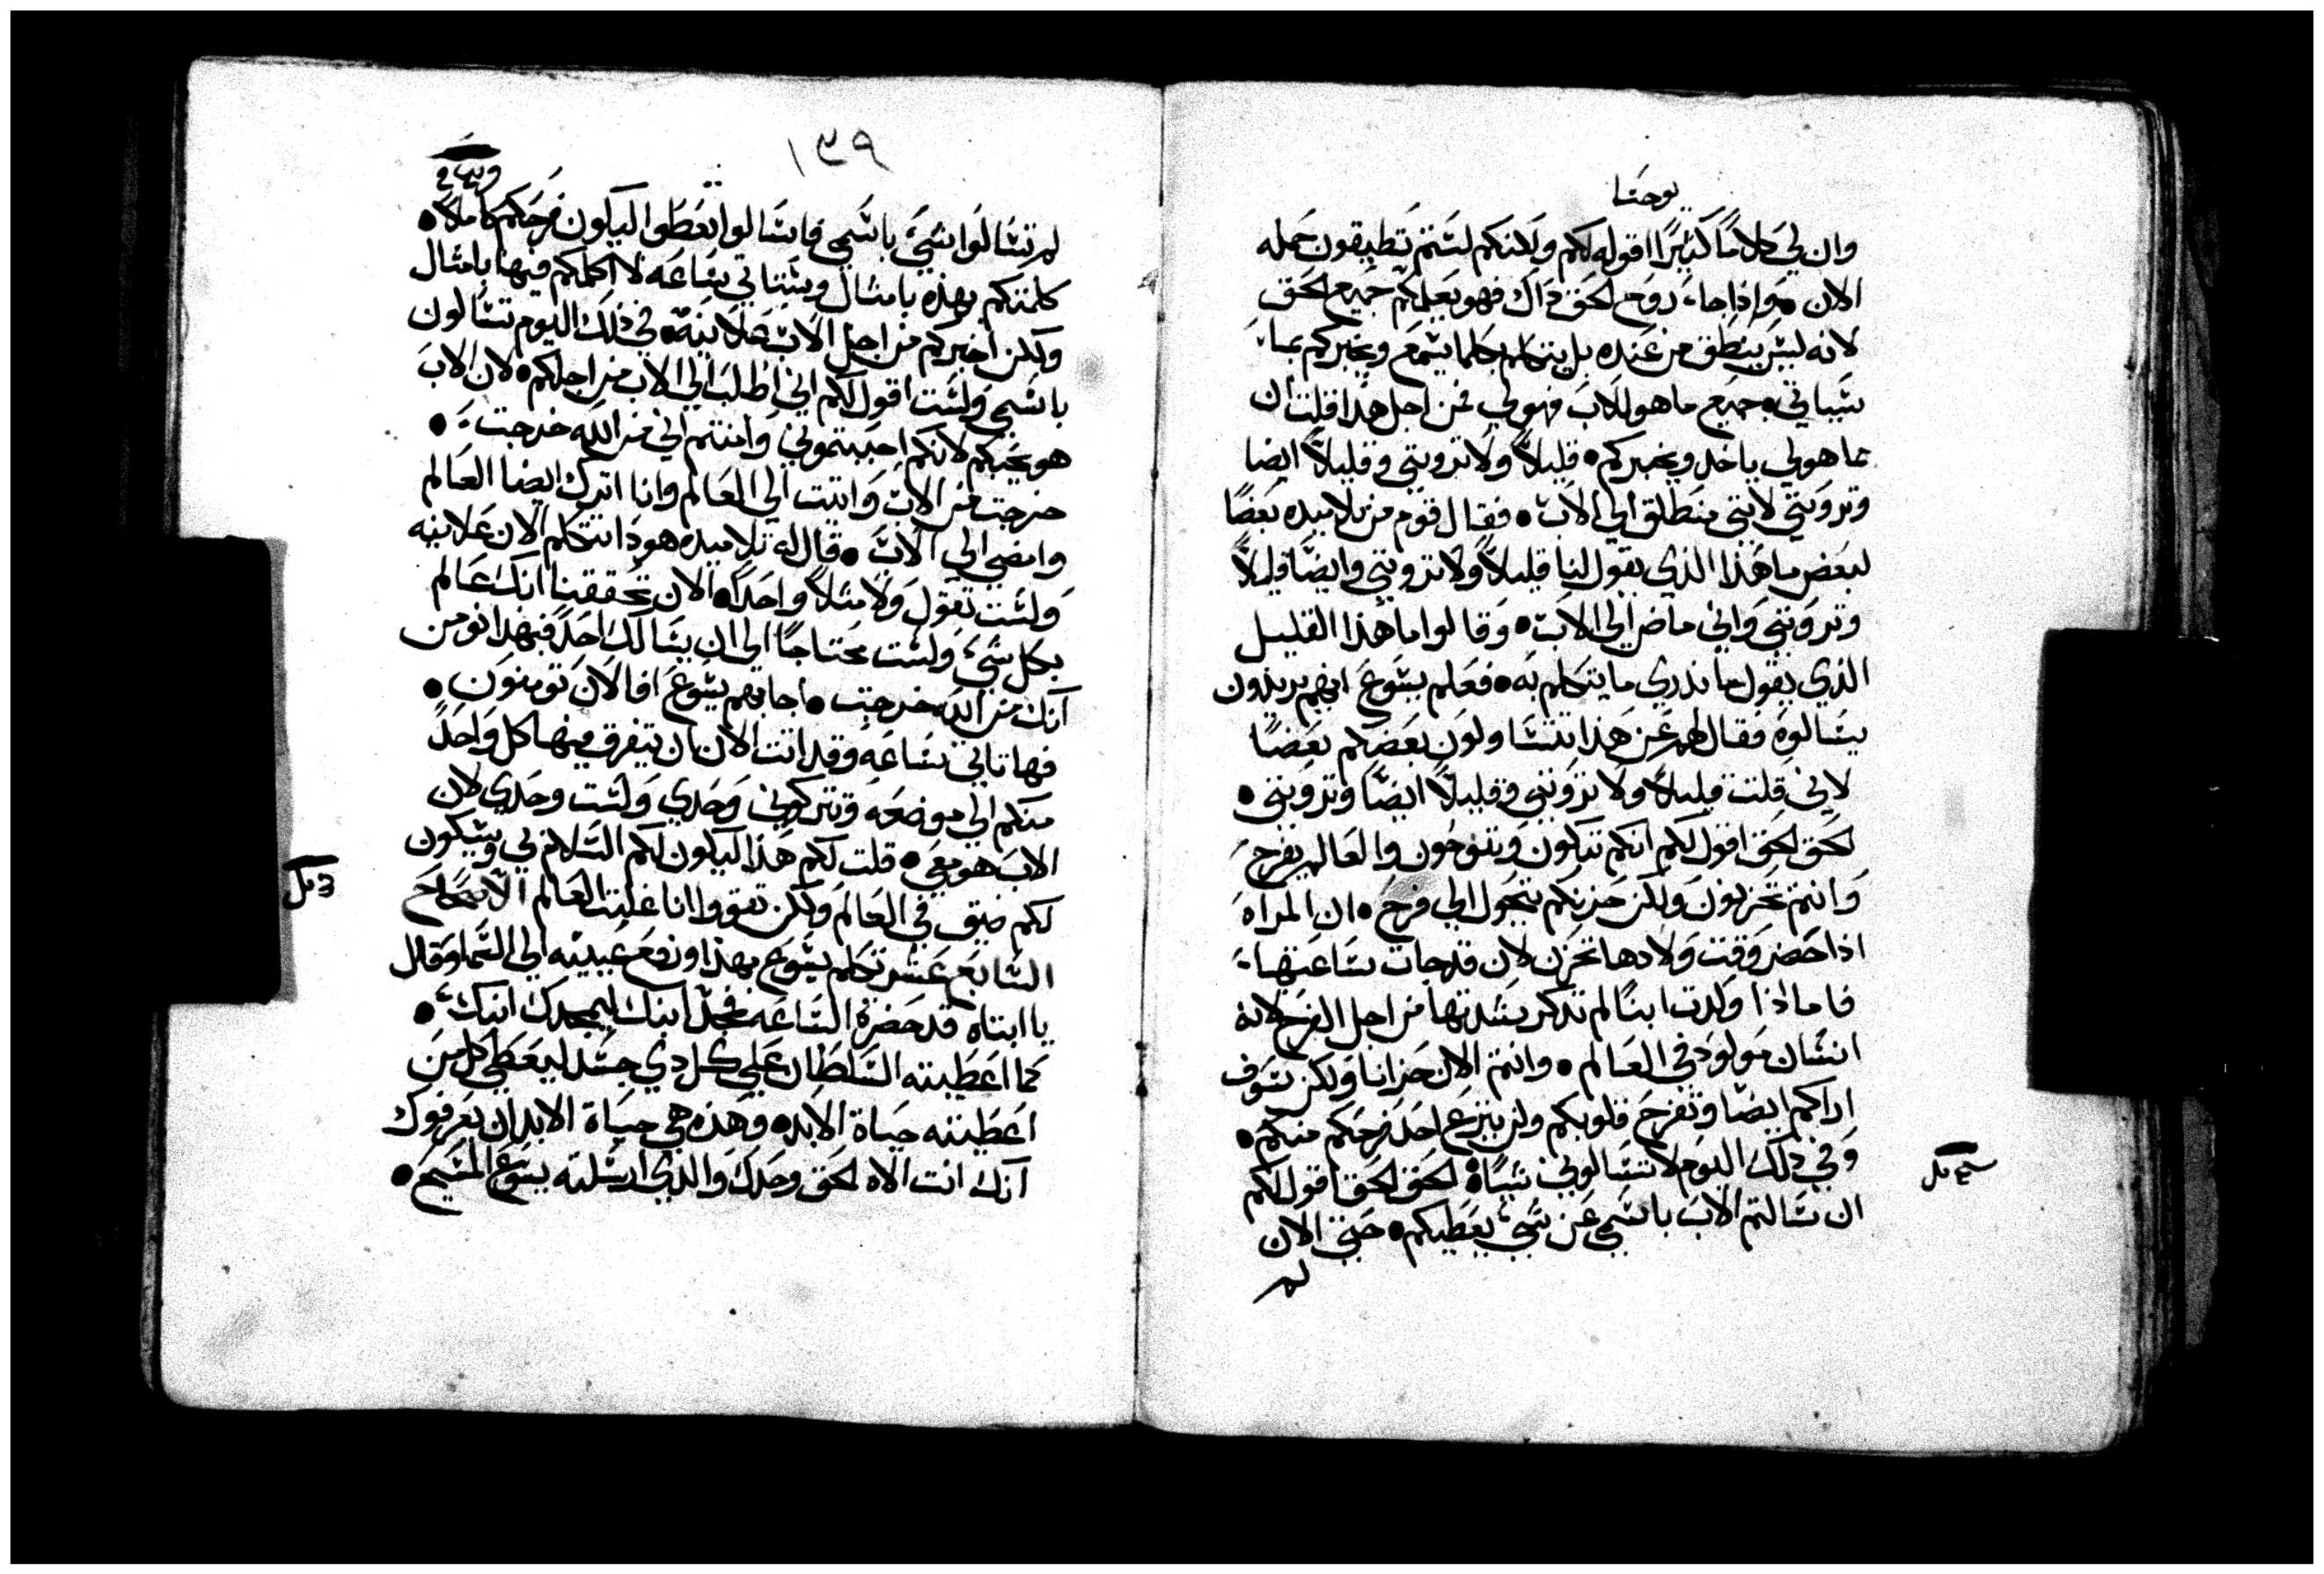 يوحنا
وان لي كلاماً كثيراً اقوله لكم ولكنكم لستم تطيقون حمله
الان ٥ واذا جاء روح الحق ذاك فهو يعلمكم جميع الحق
لانه ليس ينطق من عنده بل يتكلم بكلما يسمع ويخبركم بما
سياتي ٥ جميع ما هو للاب فهو لي فمن اجل هذا قلت ان
ما هو لي ياخد ويخبركم ٥ قليلاً ولا تروني وقليلاً ايضا
وتروني لانني منطلق الي الاب ٥ فقال قوم من تلاميده بعضًا
لبعض ما هذا الذي يقول لنا قليلاً ولا تروني وايضًا قليلاً
وتروني واني ماض الي الاب ٥ وقالوا ما هذا القليل
الذي يقول ما ندري ما يتكلم به ٥ فعلم يسوع انهم يريدون
يسالوه فقال لهم عن هذا تتسا ولون بعضكم بعضًا
لاني قلت قليلاً ولا تروني وقليلاً ايضًا وتروني ٥
الحق الحق اقول لكم انكم تبكون وتنوحون والعالم يفرح
وانتم تحزنون ولكن حزنكم يتحول الي فرح ٥ ان المراه
اذا حضر وقت ولادها تحزن لان قد جات ساعتها
فاما اذا ولدت ابنًا لم تدكر شدتها من اجل الفرح لانه
انسان مولود في العالم ٥ وانتم الان حزانا ولكن سوف
اراكم ايضًا وتفرح قلوبكم ولن ينزع احد فرحكم منكم ٥
وفي ذلك اليوم لا تسالوني شياً ٥ الحق الحق اقول لكم
ان سالتم الاب باسمي عن شيء يعطيكم ٥ حتي الان
لم
١٣٩
لم تسالوا شيء باسمي فاسالوا تعطوا ليكون فرحكم كاملاً ٥
كلمتكم بهذه بامثال وستاتي ساعه لا اكلمكم فيها بامثال
ولكن اخبركم من اجل الاب علانية ٥ في ذلك اليوم تسالون
باسمي ولست اقول لكم اني اطلب الي الاب من اجلكم ٥ لان الاب
هو يحبكم لانكم احببتموني وامنتم اني من الله خرجت ٥
خرجت من الاب واتيت الي العالم وانا اترك ايضا العالم
وامضي الي الاب ٥ قال له تلاميده هودا تتكلم الان علانيه
ولست تقول ولا مثلاً واحداً ٥ الان تحققنا انك عالم
بكل شيء ولست محتاجًا الي ان يسالك احد فبهذا نومن
انك من الله خرجت ٥ اجابهم يسوع افالان تومنون ٥
فها تاتي ساعه وقد اتت الان ان يتفرق فيها كل واحد
منكم الي موضعه وتتركوني وحدي ولست وحدي لان
الاب هو معي ٥ قلت لكم هذا ليكون لكم السلام بي وسيكون
لكم ضيق في العالم ولكن تقووا انا غلبت العالم الاصحاح
السابع عشر تكلم يسوع بهذا ورفع عينيه الي السما وقال
يا ابتاه قد حضرة الساعه فمجد ابنك ليمجدك ابنك ٥
كما اعطيته السلطان علي كل دي جسد ليعطي كل من
اعطيته حياة الابد ٥ وهذه هي حياة الابد ان يعرفوك
انك انت الاه الحق وحدك والدي ارسلته يسوع المسيح ٥